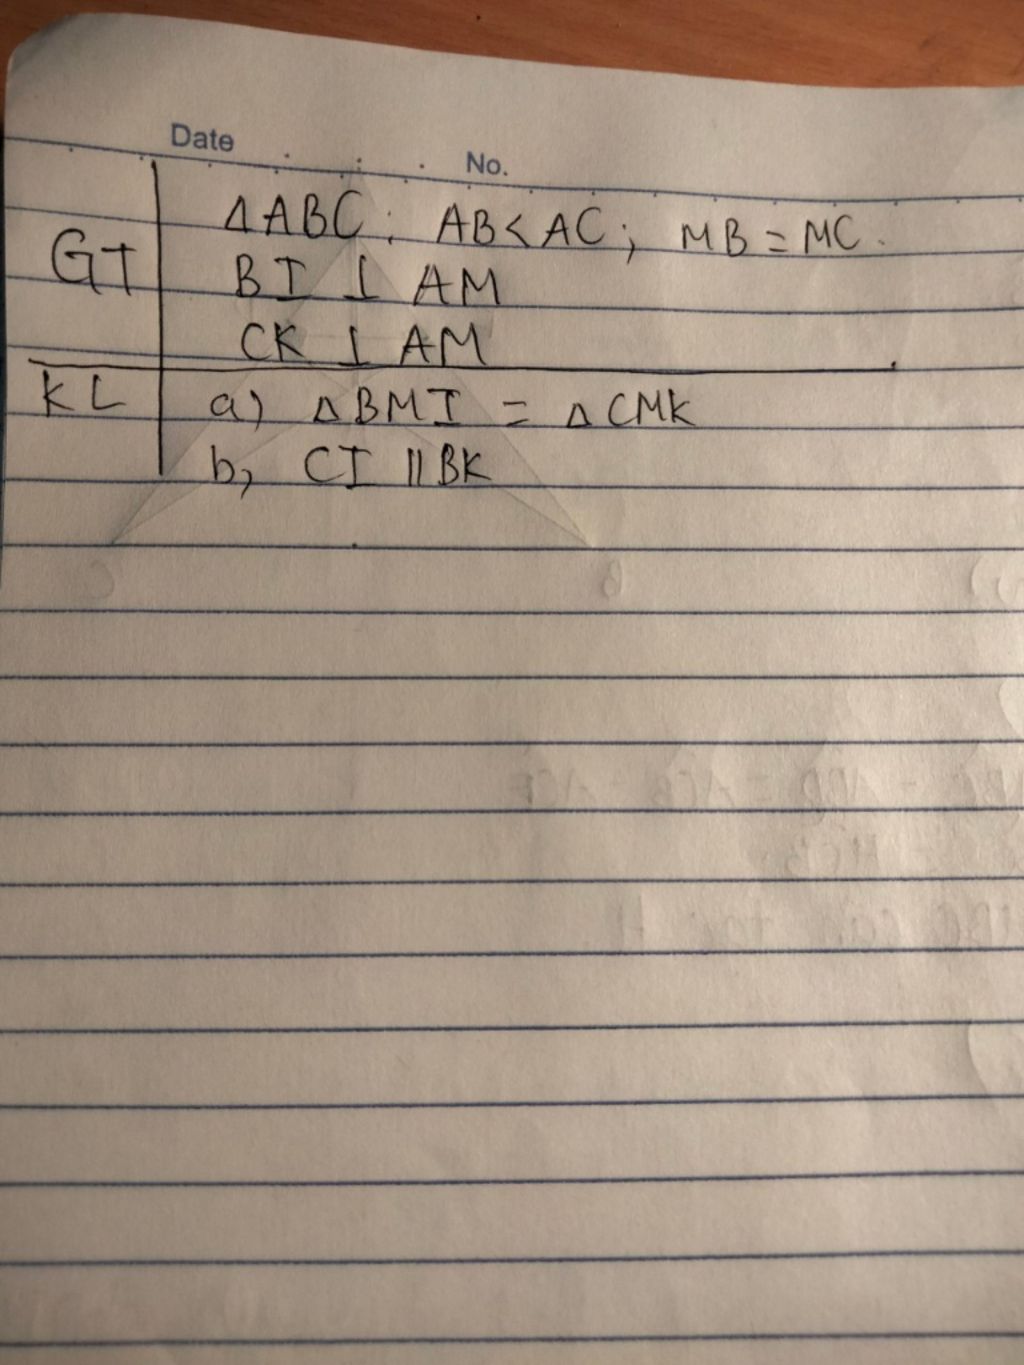 Date No.
ΔABC; AB<AC; MB=MC.
GT
BI ⊥ AM
CK ⊥ AM
KL a) ΔBMI = ΔCMK
b, CI || BK
C B